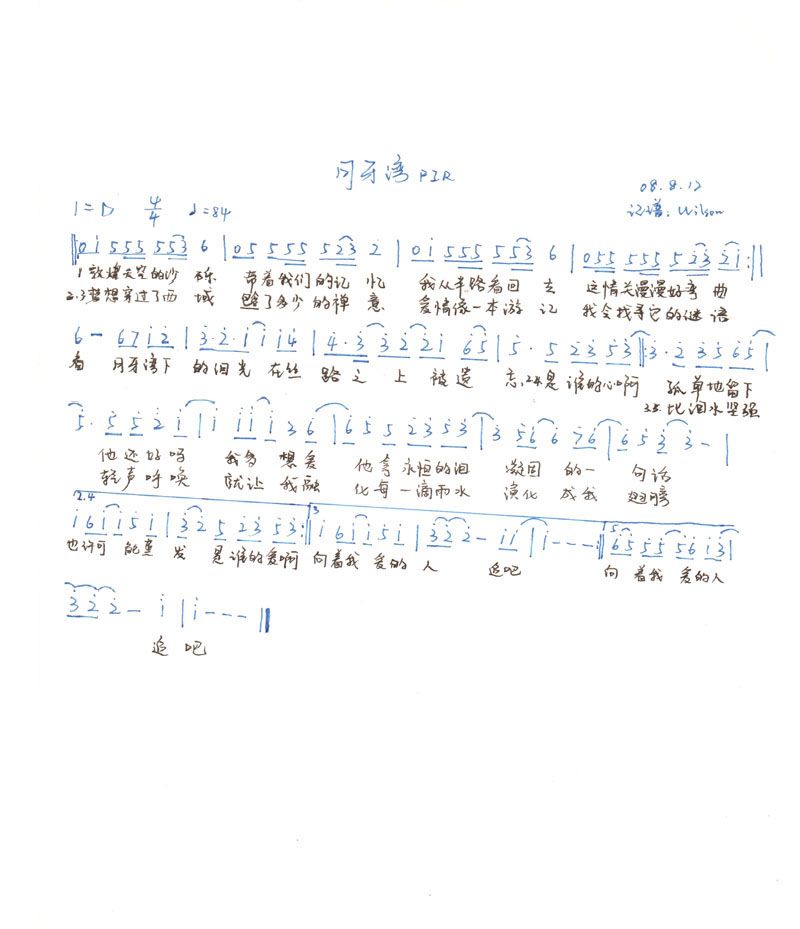 月牙湾 FIR
08.8.12
1=D 4/4 ♩=84
记谱:Wilson
0 i 5 5 5 5 5 3 6 | 0 5 5 5 5 5 2 3 2 | 0 i 5 5 5 5 5 3 6 | 0 5 5 5 5 5 5 2 3 2 i :||
1.敦煌天空的沙 砾 带着我们的记 忆 我从半路看回 去 这情关漫漫好弯 曲
2.3梦想穿过了西 域 包含了多少的禅 意 爱情像一本游 记 我会找寻它的谜 语
6 – 6 7 i 2 | 3·2·i i i 4 | 4·3 3 2 2 i 6 5 | 5· 5 2 3 5 3 || 3·2 3 5 6 5 |
看 月牙湾下 的泪光 在丝 路 之 上 被遗 忘,2.4.是 谁的心啊 孤 单地留下
3.5.比泪水坚强
5· 5 5 2 i | i i i i 3 6 | 6 5 5 2 3 5 3 | 3 5 6 6 7 6 | 6 5 3 3 – |
他 还 好吗 我多 想爱 他拿 永恒的泪 凝固 的一 句话
轻声 呼唤 就让 我融 化每 一滴雨水 演化 成我 翅膀
2.4
i 6 i i 5 i | 3 2 5 2 3 5 3 :||
3
i 6 i i 5 i | 3 2 2 – i i | i – – – :||
5
6 5 5 5 5 6 i 3 |
也许可 能重 发 是谁的爱啊 向着我 爱的 人 追吧 向 着我 爱的人
3 2 2 – i | i – – – ||
追 吧